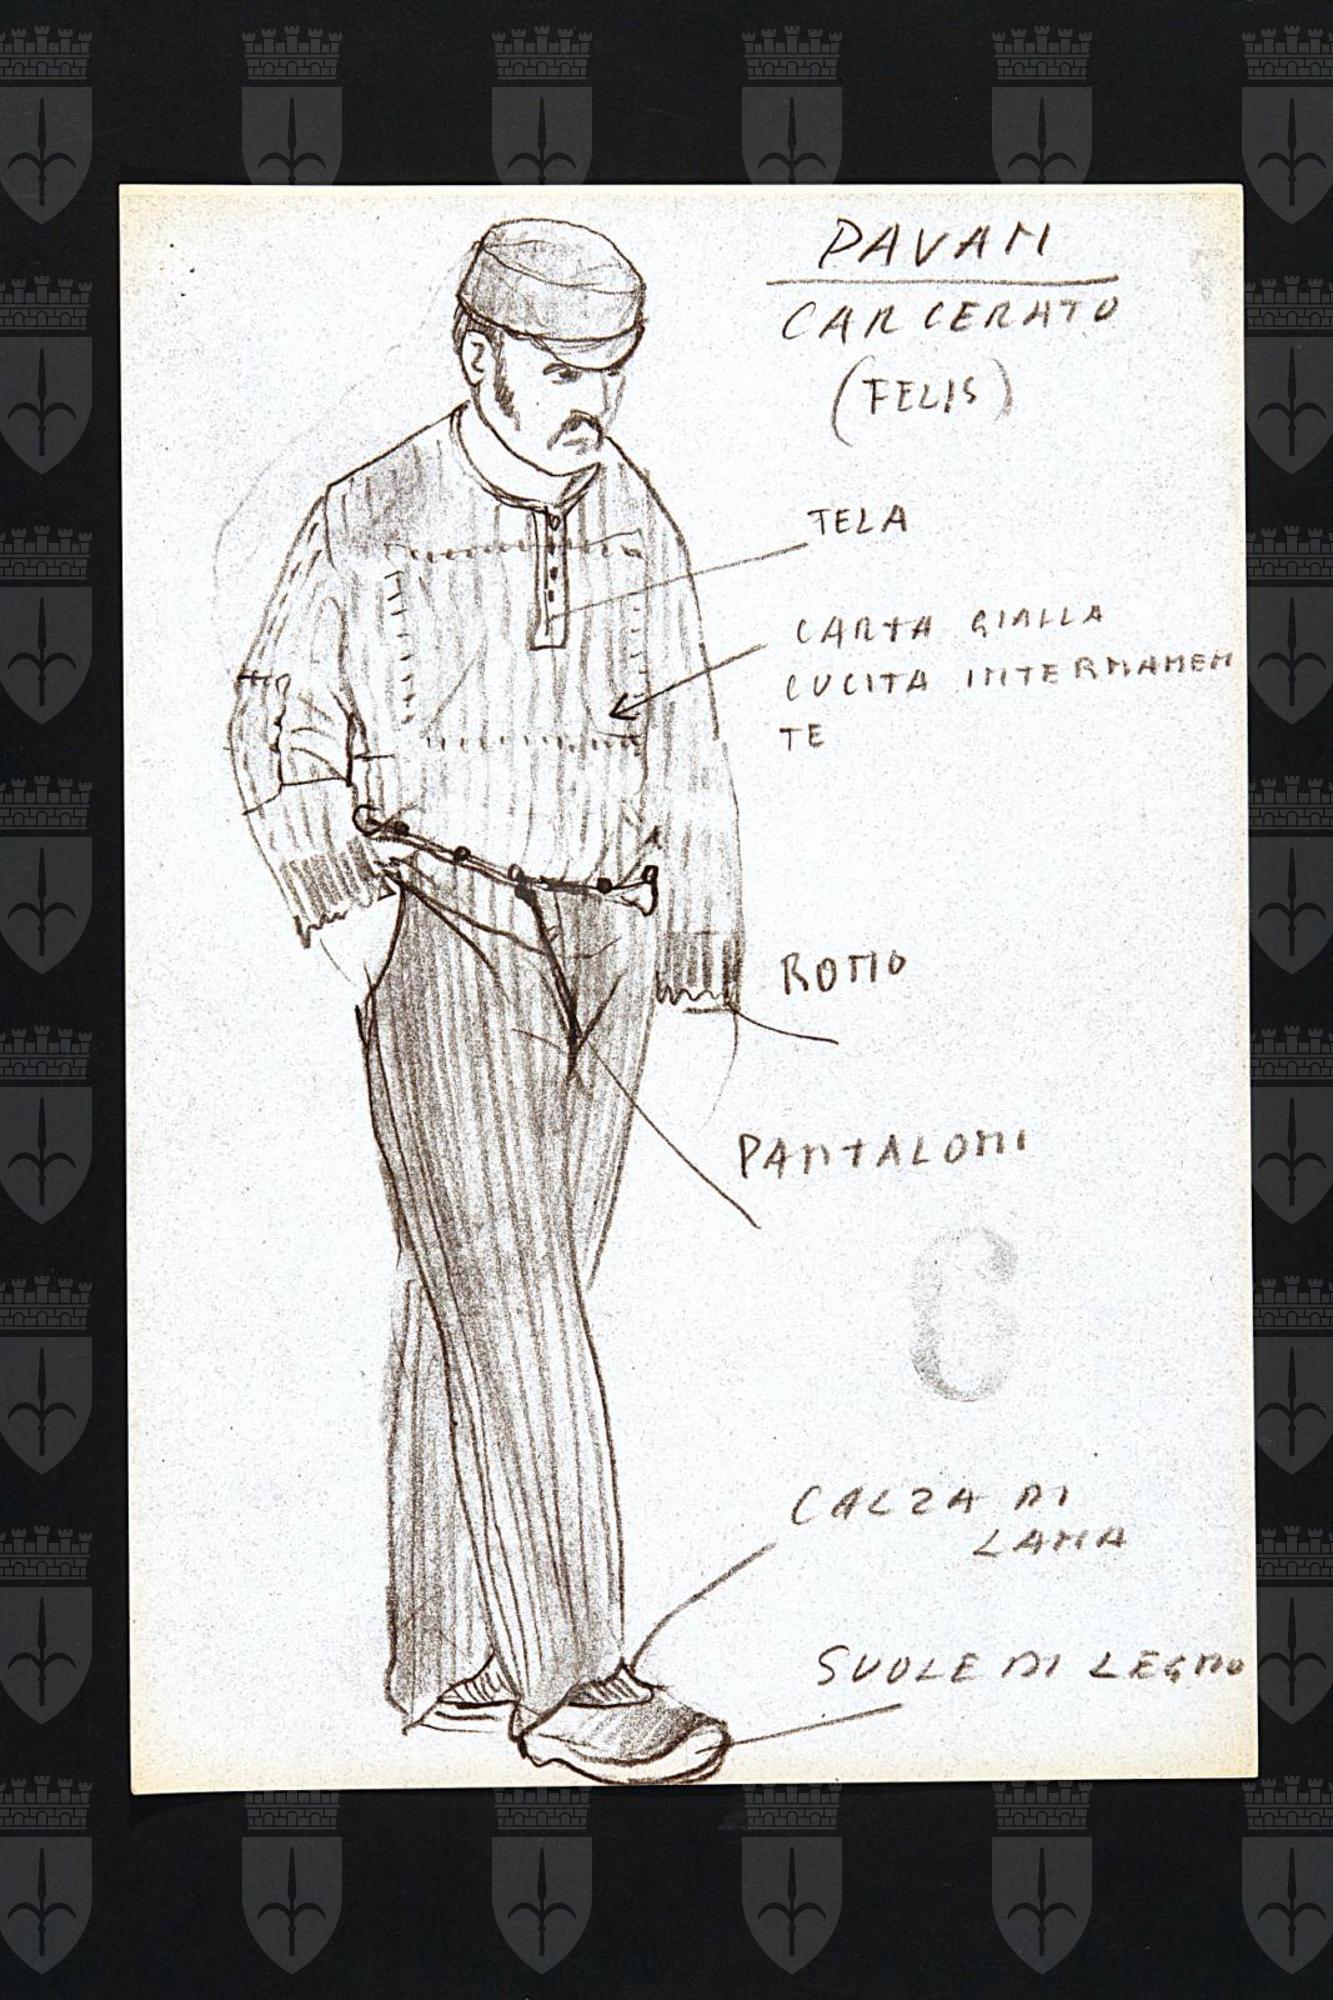 PAVAN
CARCERATO
(FELIS)
TELA
CARTA GIALLA
CUCITA INTERNAMEN
TE
ROTTO
PANTALONI
6
CALZA DI
LANA
SUOLE DI LEGNO